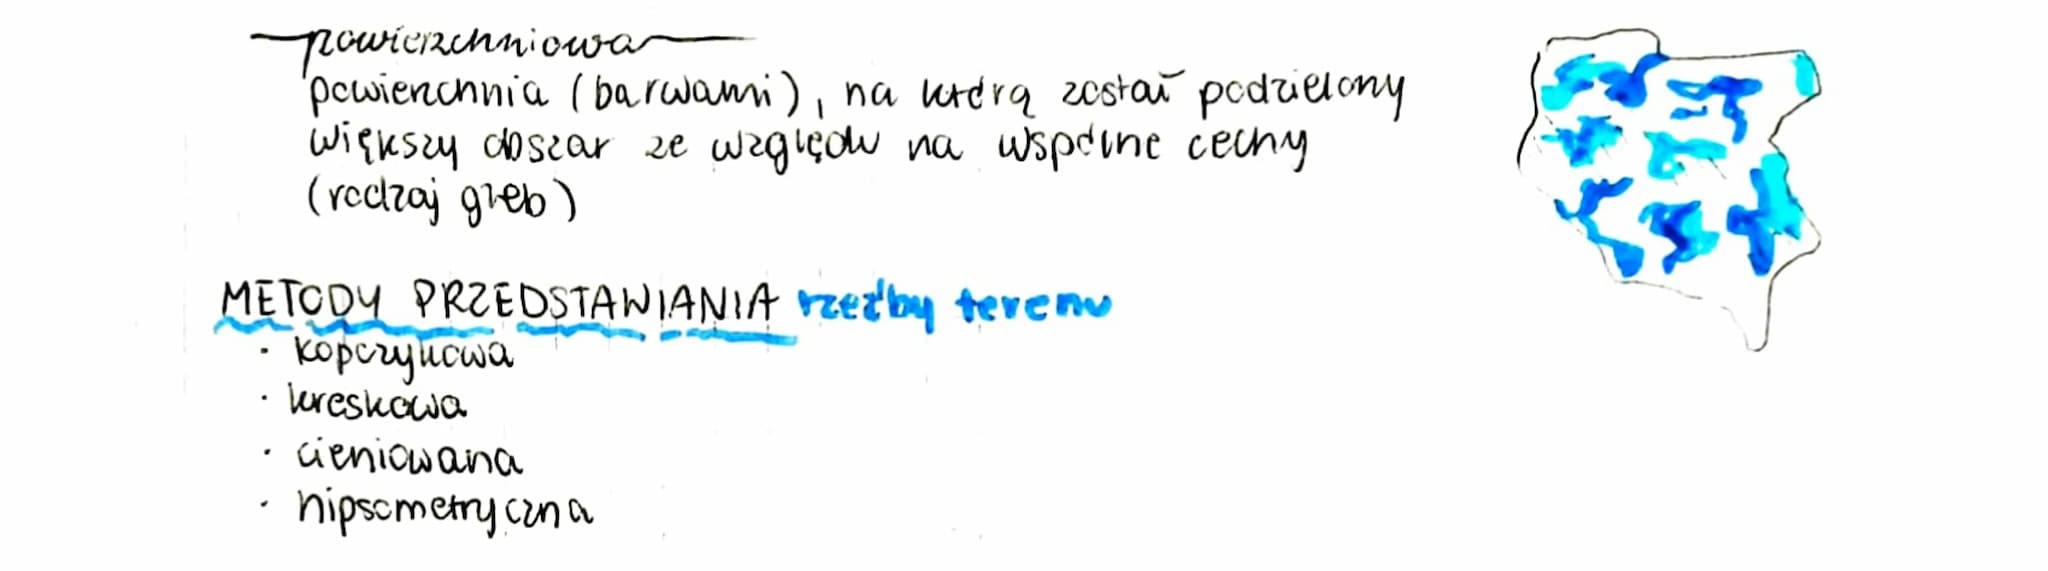 powierzchniowa
powierzchnia (barwami), na którą został podzielony
większy obszar ze względu na wspólne cechy
(rodzaj gleb)
METODY PRZEDSTAWIANIA rzeźby terenu
· kopczykowa
· kreskowa
· cieniowana
· hipsometryczna